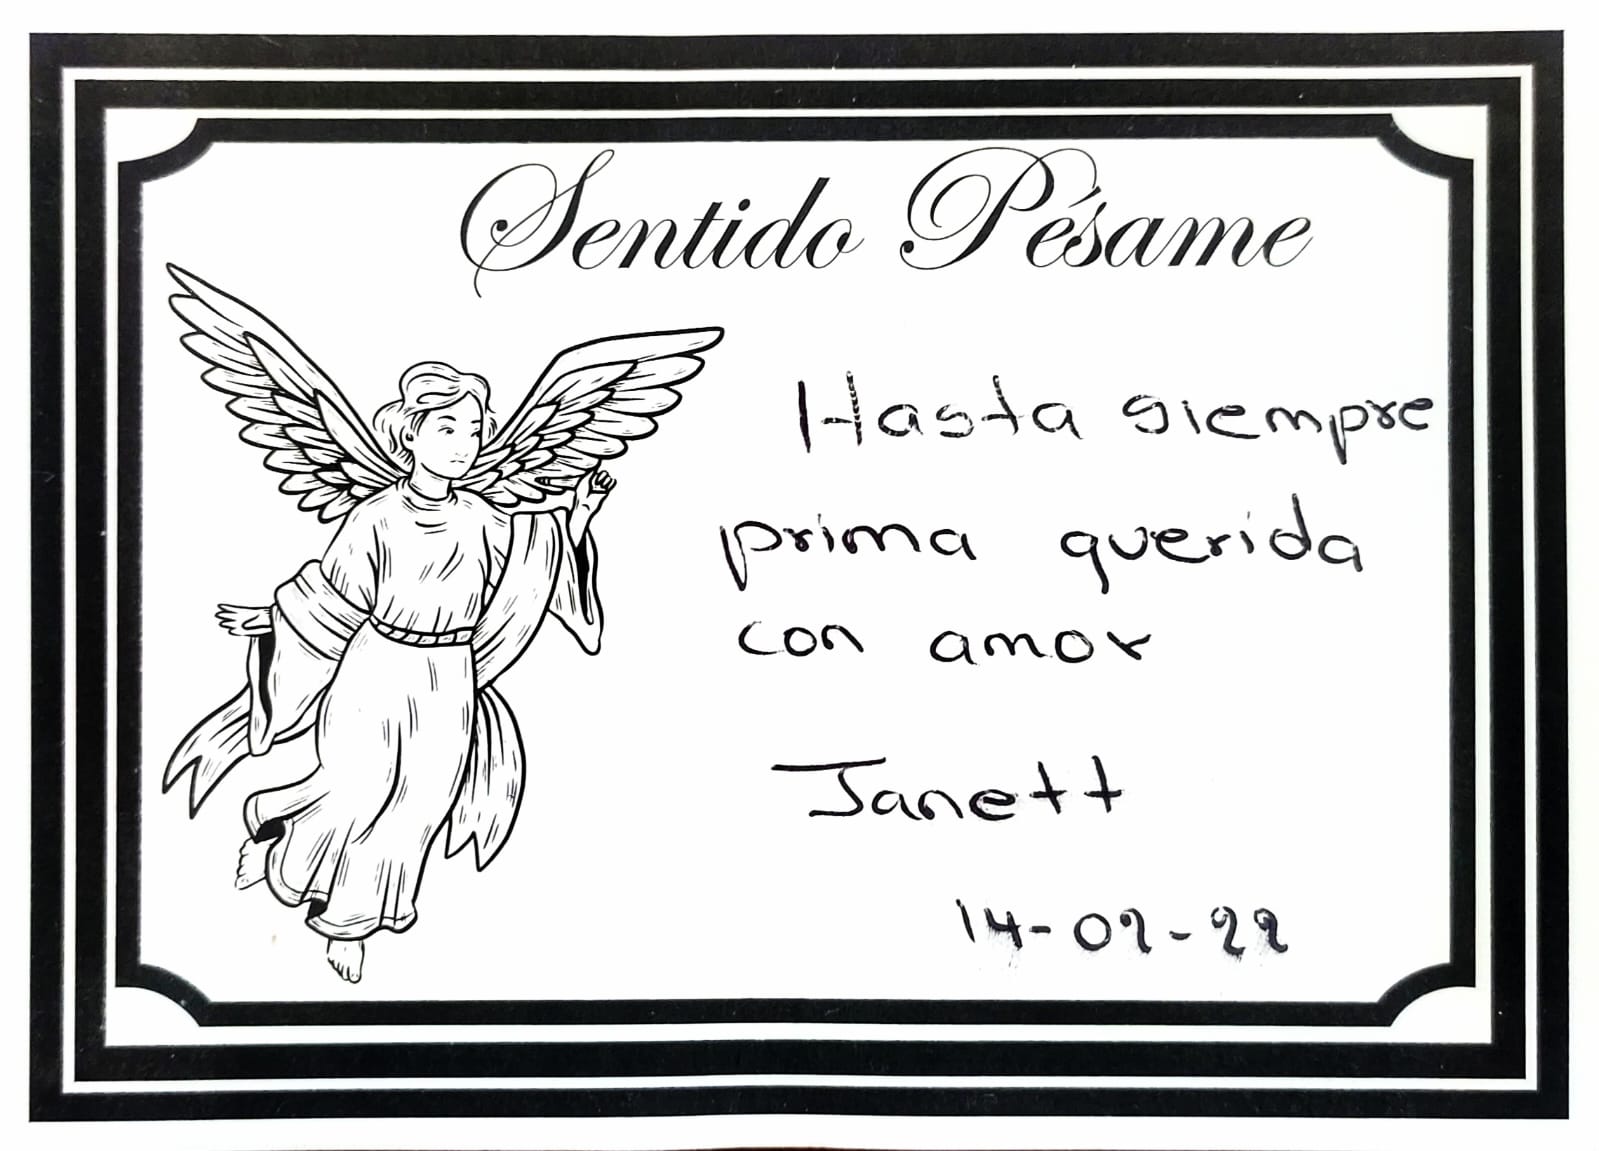 Sentido Pésame
Hasta siempre
prima querida
con amor
Janett
14-02-22